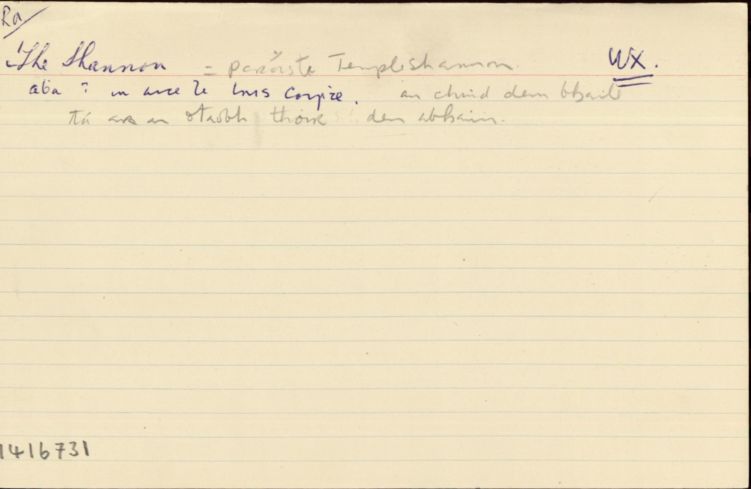 Ra
The Shannon = paróiste Templeshannon WX.
aba ? in aice le Inis Corp
an chuid den bhaile
tá ar an dtaobh thoir den abhainn.
1416731